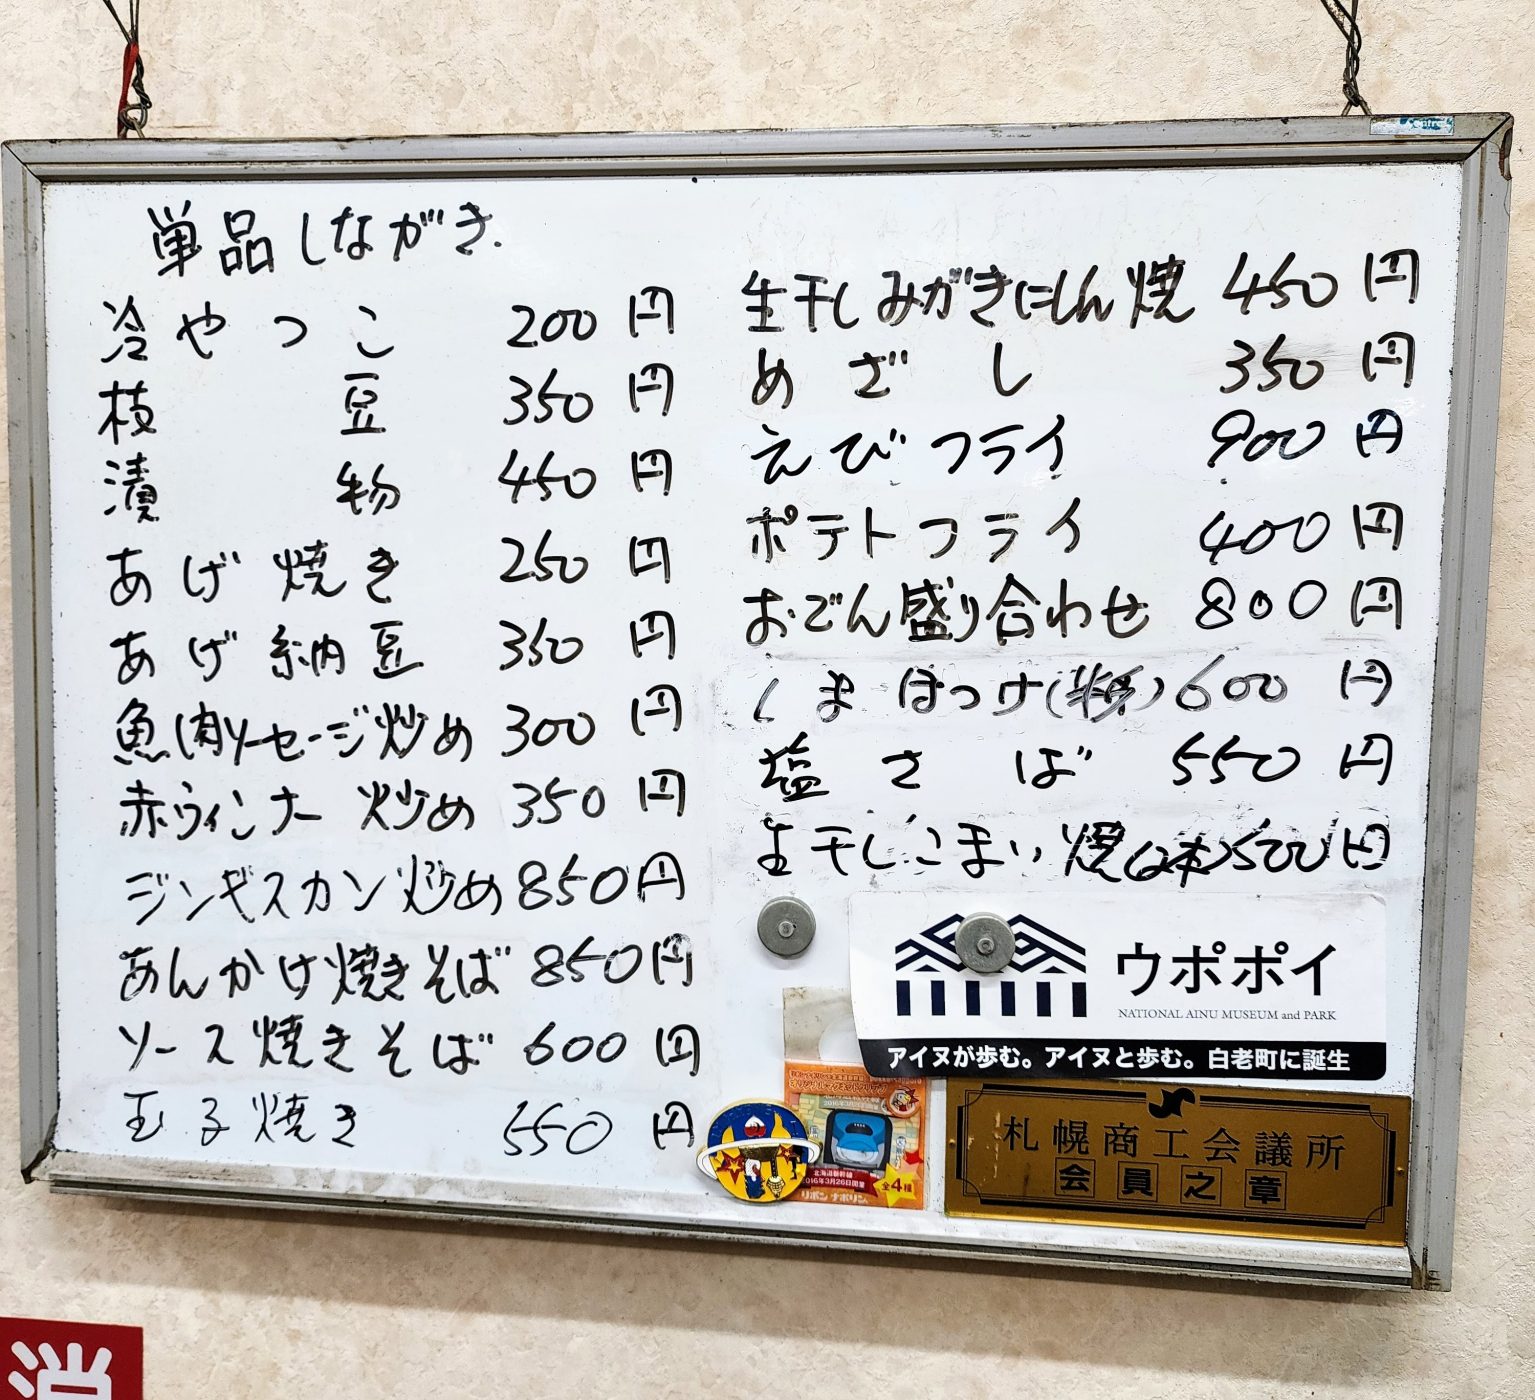 単品しながき.
冷やつこ 200円
枝豆 350円
漬物 450円
あげ焼き 250円
あげ納豆 350円
魚肉ソーセージ炒め 300円
赤ウィンナー炒め 350円
ジンギスカン炒め 850円
あんかけ焼きそば 850円
ソース焼きそば 600円
玉子焼き 550円
生干しみがきにしん焼 450円
めざし 350円
えびフライ 900円
ポテトフライ 400円
おでん盛り合わせ 800円
しまほっけ 600円
塩さば 550円
生干しこまい焼 500円
ウポポイ
NATIONAL AINU MUSEUM and PARK
アイヌが歩む。アイヌと歩む。白老町に誕生
北海道新幹線
2016年3月26日開業
全4種
リボン ナポリン
札幌商工会議所
会員之章
消